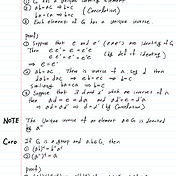 ① G has a unique identity element.
② ab=ac ⇒ b=c (Cancellation)
ba=ca ⇒ b=c
③ Each element of G has a unique inverse.
proof)
① Suppose that e and e' are identity of G
Then e·e' = e (by def of identity)
e·e' = e'
⇒ e = e'
② ab=ac Then is inverse of a, say d then
dab=dac ⇒ eb=ec ⇒ b=c
Similarly ba=ca ⇒ b=c
③ Suppose that d and d' which are inverses of a
then ad=e=da and ad'=e=d'a
⇒ ad=ad' ⇒ d=d' (by Cancellation)
NOTE The Unique inverse of an element a∈G is denoted
by a⁻¹
Coro If G is a group and a,b∈G, then
① (ab)⁻¹=b⁻¹a⁻¹
② (a⁻¹)⁻¹=a
proof)